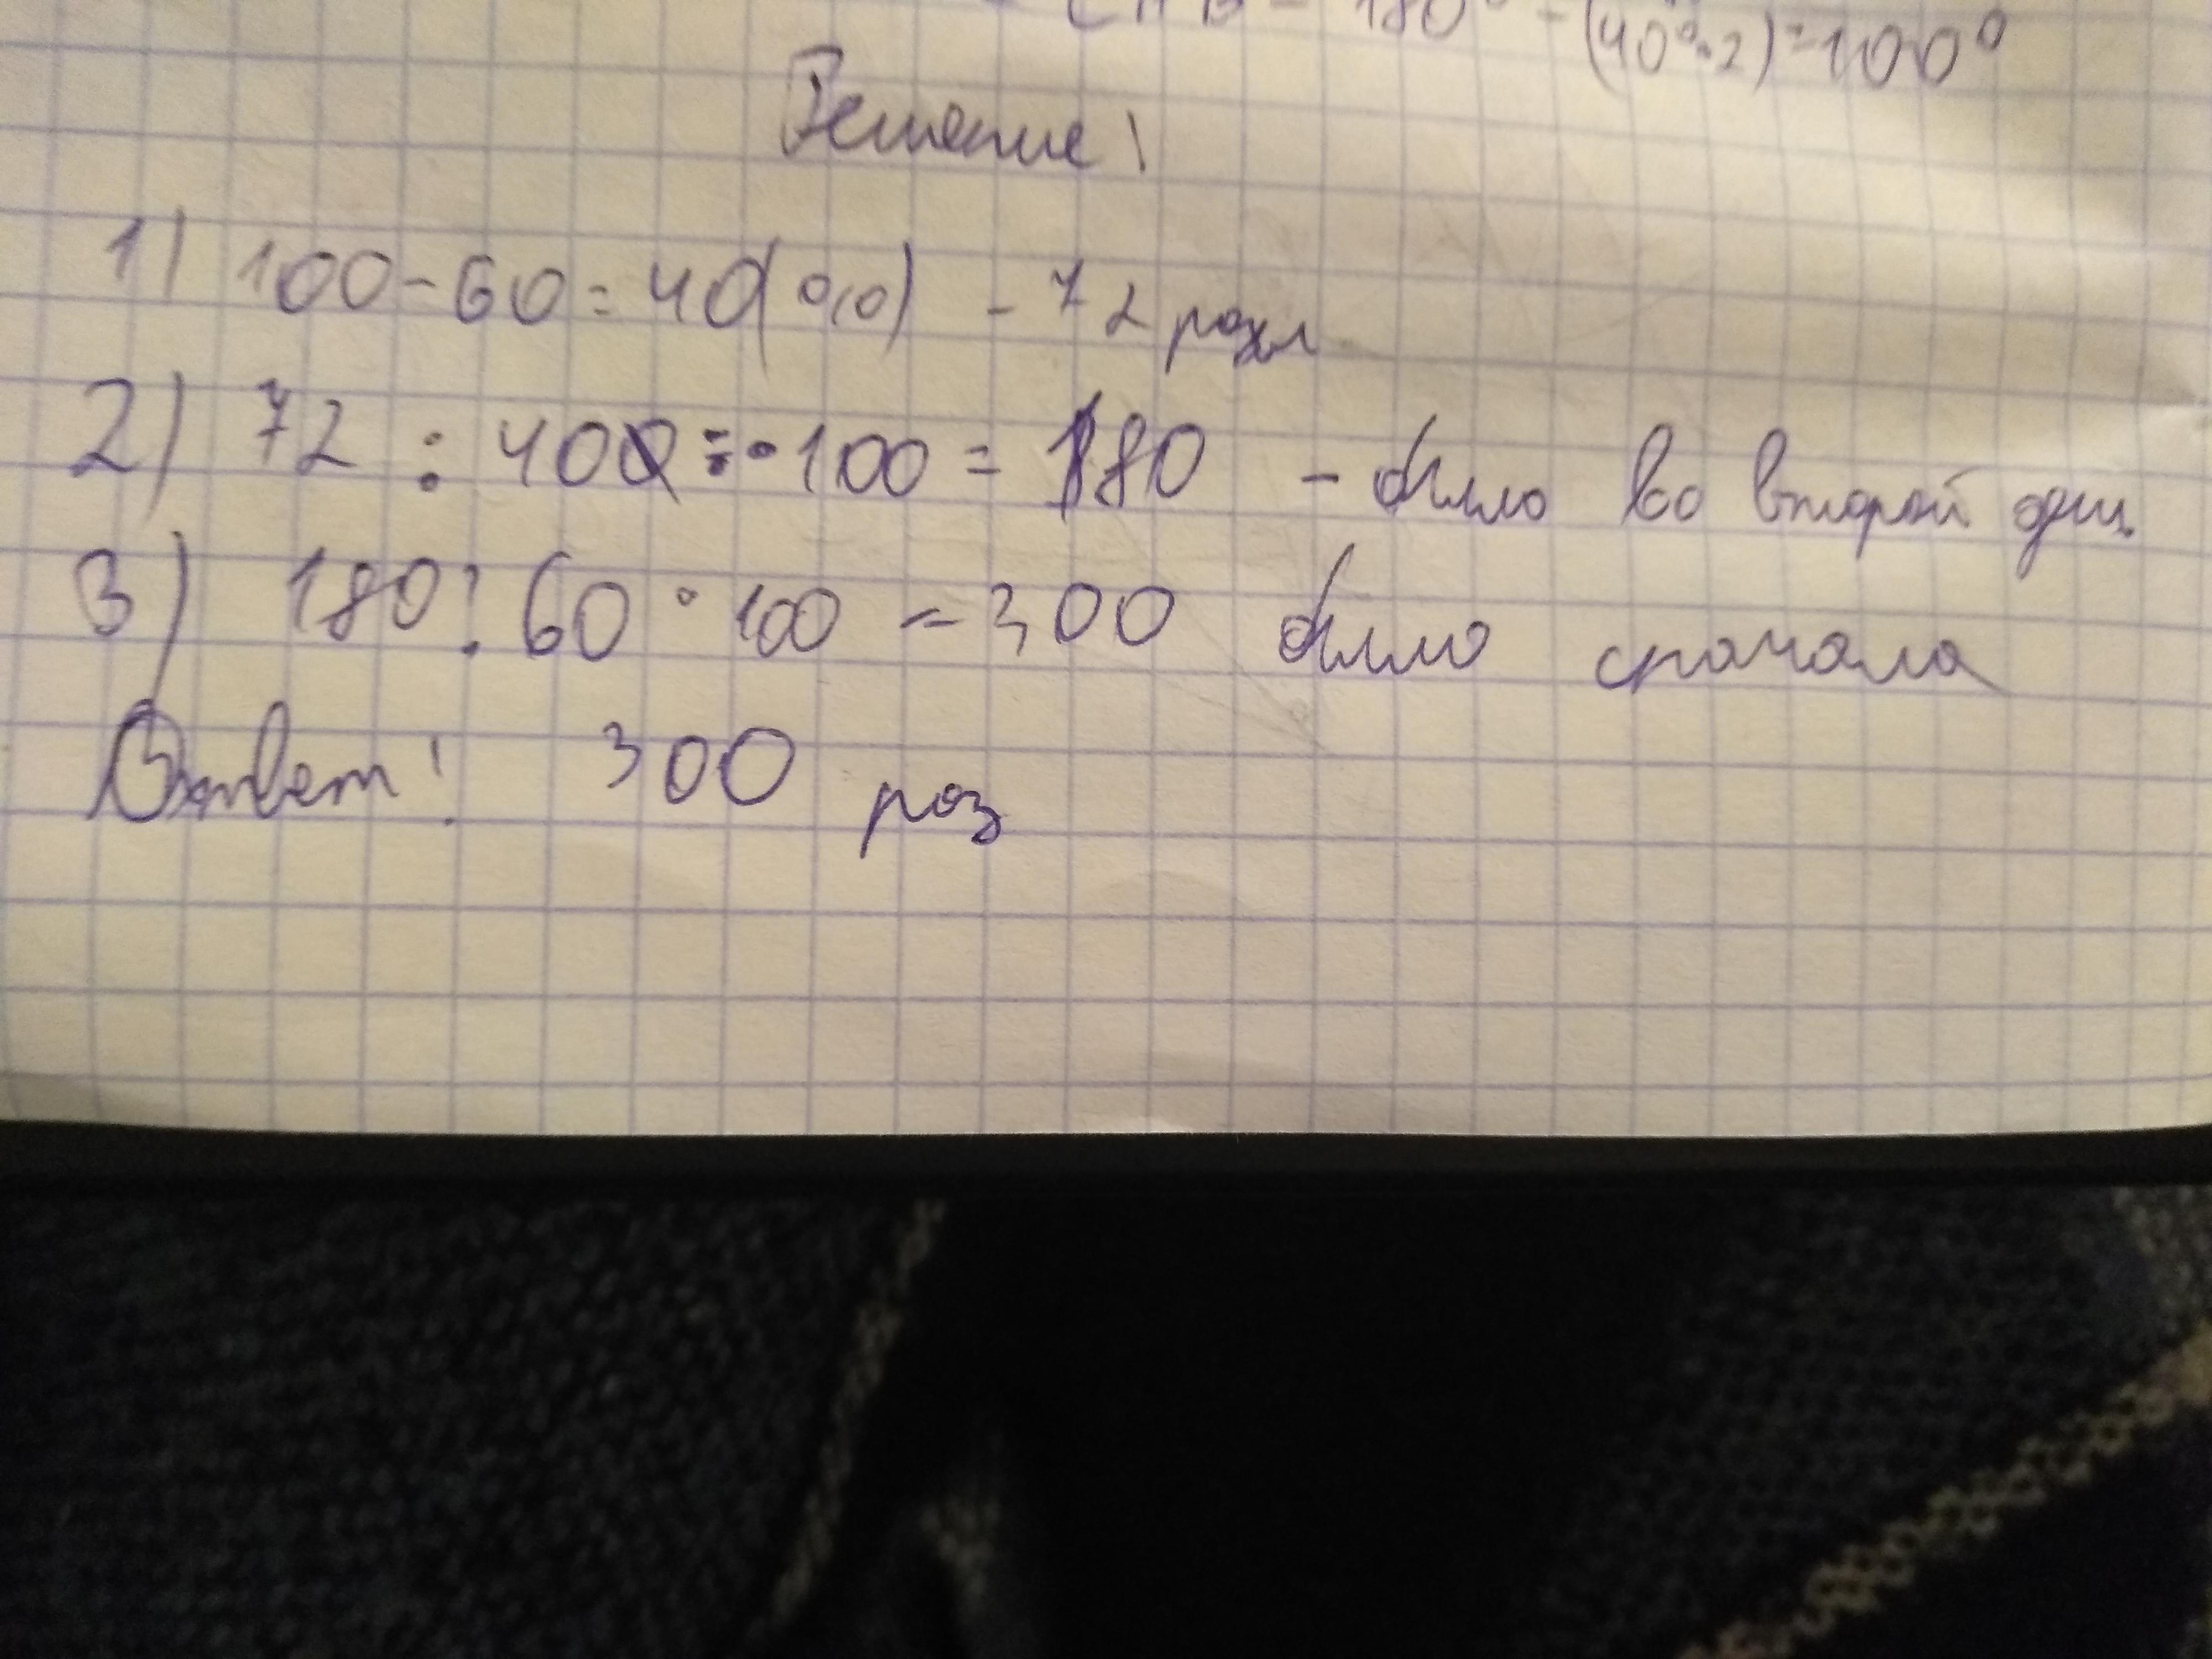 = 180° - (40°·2) = 100°
Решение:
1) 100 - 60 = 40(%) - 72
2) 72 : 40 · 100 = 180 - было во второй день
3) 180 : 60 · 100 = 300 было сначала
Ответ: 300 роз